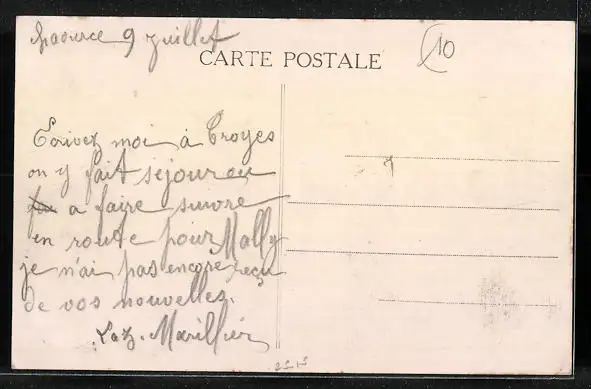 Chaource 9 juillet
(10
CARTE POSTALE
Ecrivez moi à Troyes
on y fait séjour ou
a faire suivre
en route pour Mailly
je n'ai pas encore reçu
de vos nouvelles.
Marillier